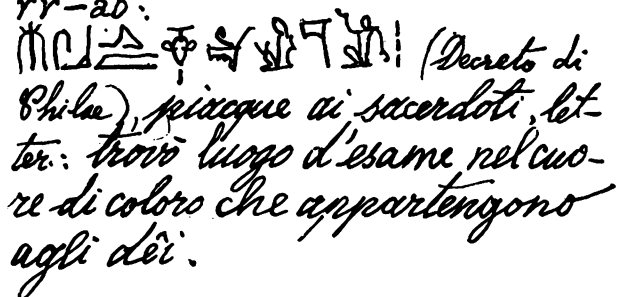 (Decreto di
Philae), piacque ai sacerdoti, let-
ter.: trovò luogo d'esame nel cuo-
re di coloro che appartengono
agli dêi.